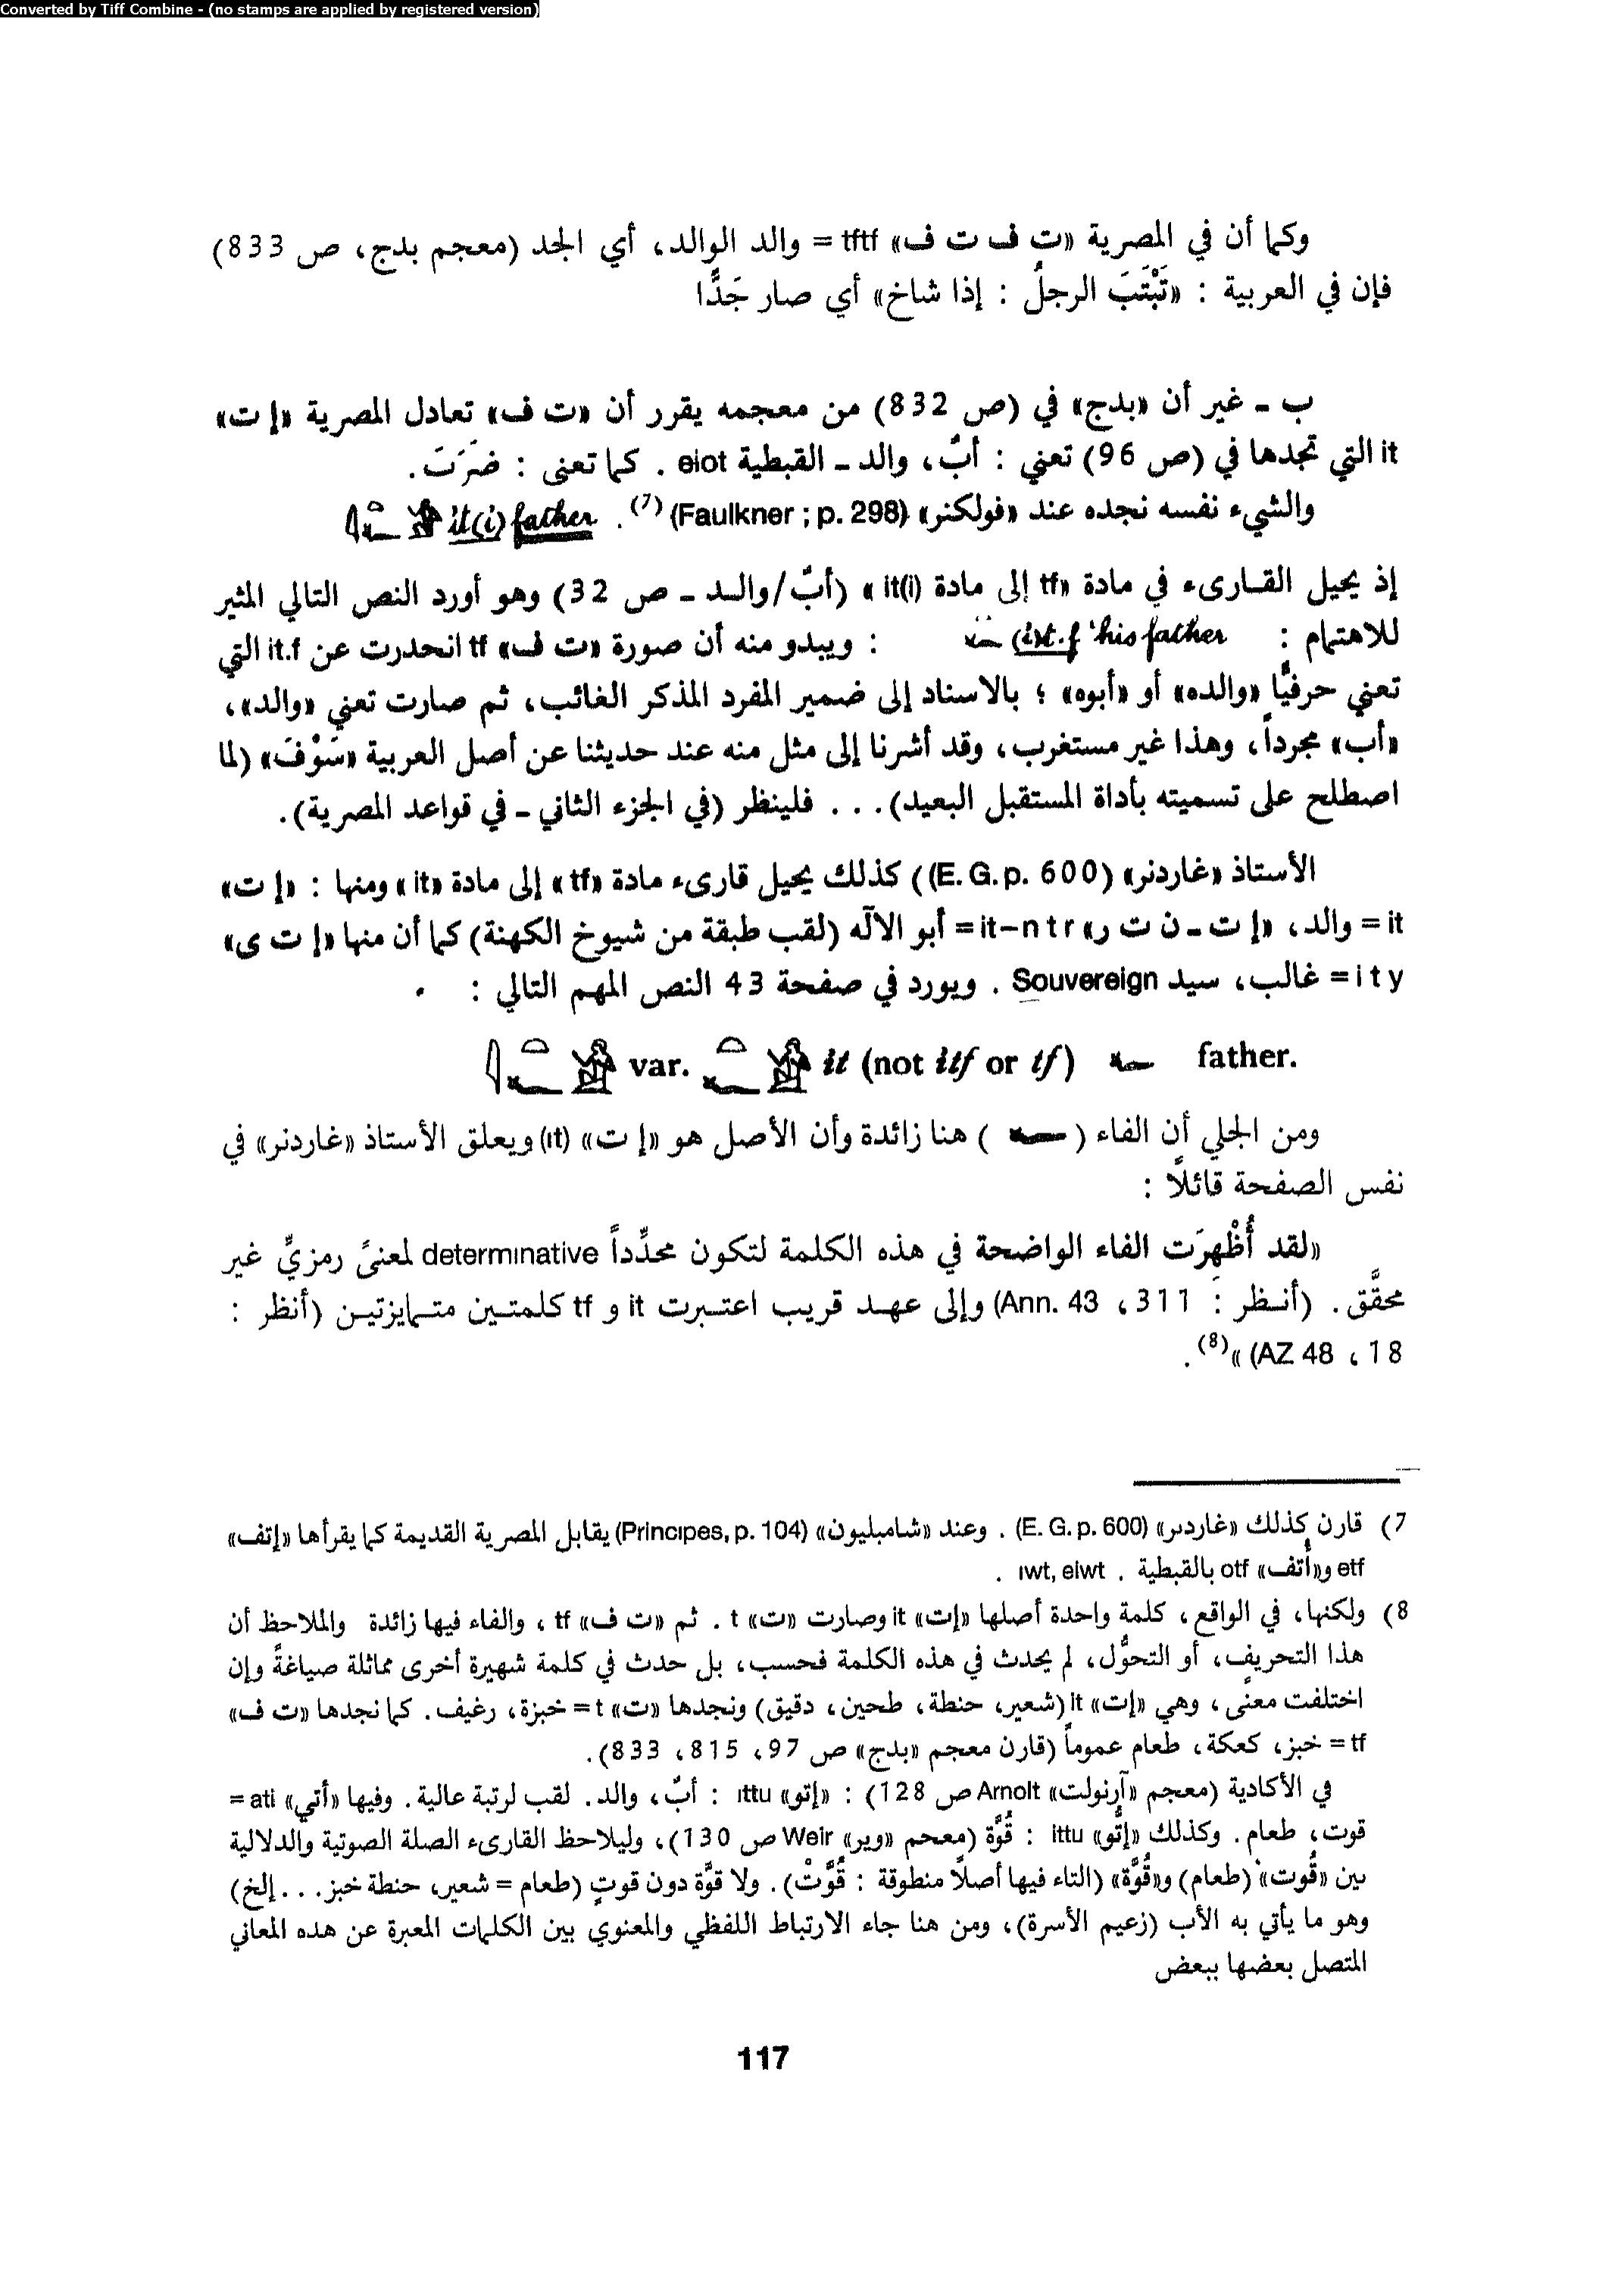 Converted by Tiff Combine - (no stamps are applied by registered version)
وكما أن في المصرية «ت ف ت ف» tftf = والد الوالد، أي الجد (معجم بدج، ص 833)
فإن في العربية : «تَبْتَبَ الرجلُ : إذا شاخ» أي صار جَدًّا
ب ـ غير أن «بدج» في (ص 832) من معجمه يقرر أن «ت ف» تعادل المصرية «إ ت»
it التي تجدها في (ص 96) تعني : أبٌ، والد ـ القبطية eiot . كما تعنى : ضَرَبَ.
والشيء نفسه نجده عند «فولكنر» (Faulkner ; p. 298) (7) . it(i) father
إذ يحيل القـارىء في مادة «tf» إلى مادة «it(i)» (أبٌ/والـد ـ ص 32) وهو أورد النص التالي المثير
للاهتمام : (i)t.f 'his father : ويبدو منه أن صورة «ت ف» tf انحدرت عن it.f التي
تعني حرفيًّا «والده» أو «أبوه» ؛ بالاسناد إلى ضمير المفرد المذكر الغائب، ثم صارت تعني «والد»،
«أب» مجرداً، وهذا غير مستغرب، وقد أشرنا إلى مثل منه عند حديثنا عن أصل العربية «سَوْفَ» (لما
اصطلح على تسميته بأداة المستقبل البعيد). . . فلينظر (في الجزء الثاني ـ في قواعد المصرية).
الأستاذ «غاردنر» (E. G. p. 600)) كذلك يحيل قارىء مادة «tf» إلى مادة «it» ومنها : «إ ت»
it = والد، «إ ت ـ ن ت ر» it-ntr = أبو الآله (لقب طبقة من شيوخ الكهنة) كما أن منها «إ ت ى»
ity = غالب، سيد Souvereign . ويورد في صفحة 43 النص المهم التالي :
var. it (not itf or tf) father.
ومن الجلي أن الفاء ( ) هنا زائدة وأن الأصل هو «إ ت» (it) ويعلق الأستاذ «غاردنر» في
نفس الصفحة قائلاً :
«لقد أُظْهِرَت الفاء الواضحة في هذه الكلمة لتكون محدِّداً determinative لمعنىً رمزيٍّ غير
محقَّق. (أنـظر : Ann. 43 ، 311) وإلى عهـد قريب اعتـبرت it و tf كلمتـين متـمايزتيـن (أنظر :
AZ 48 ، 18) »(8) .
7) قارن كذلك «غاردنر» (E. G. p. 600) . وعند «شامبليون» (Principes, p. 104) يقابل المصرية القديمة كما يقرأها «إتف»
etf و«أتف» otf بالقبطية . iwt, eiwt .
8) ولكنها، في الواقع، كلمة واحدة أصلها «إت» it وصارت «ت» t . ثم «ت ف» tf ، والفاء فيها زائدة والملاحظ أن
هذا التحريف، أو التحوُّل، لم يحدث في هذه الكلمة فحسب، بل حدث في كلمة شهيرة أخرى مماثلة صياغةً وإن
اختلفت معنًى، وهي «إت» it (شعير، حنطة، طحين، دقيق) ونجدها «ت» t = خبزة، رغيف. كما نجدها «ت ف»
tf = خبز، كعكة، طعام عموماً (قارن معجم «بدج» ص 97، 815، 833).
في الأكادية (معجم «آرنولت» Arnolt ص 128) : «إتو» ittu : أبٌ، والد. لقب لرتبة عالية. وفيها «أتي» ati =
قوت، طعام. وكذلك «إتُّو» ittu : قُوَّة (معجم «وير» Weir ص 130)، وليلاحظ القارىء الصلة الصوتية والدلالية
بين «قُوت» (طعام) و«قُوَّة» (التاء فيها أصلاً منطوقة : قُوَّتْ). ولا قوَّة دون قوتٍ (طعام = شعير، حنطة خبز. . . إلخ)
وهو ما يأتي به الأب (زعيم الأسرة)، ومن هنا جاء الارتباط اللفظي والمعنوي بين الكلمات المعبرة عن هذه المعاني
المتصل بعضها ببعض
117